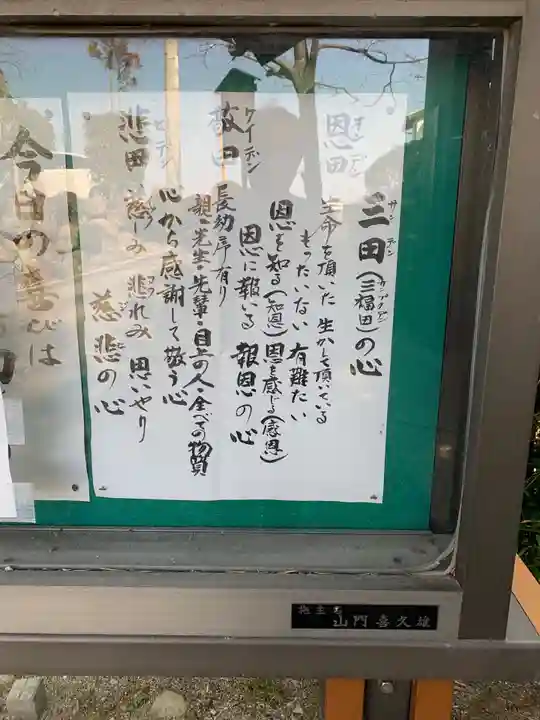 三田（三福田）の心
サンデン
サンプクデン
恩田
オンデン
生命を頂いた 生かして頂いている
もったいない 有難たい
恩を知る（知恩）恩を感じる（感恩）
恩に報いる 報恩の心
敬田
ケイデン
長幼序有り
親・先生・先輩・目上の人 全べての物質
心から感謝して敬う心
悲田
ヒデン
慈しみ 悲れみ 思いやり
慈悲の心
今日の喜びは
施主名
山門喜久雄